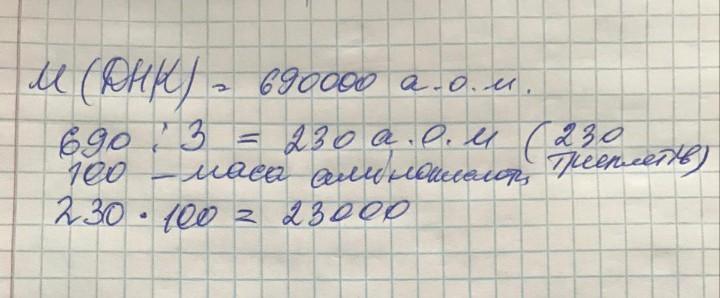 М (ДНК) = 690000 а.о.м.
690 : 3 = 230 а.о.м (230
триплетів)
100 – маса амінокислоти
230 · 100 = 23000